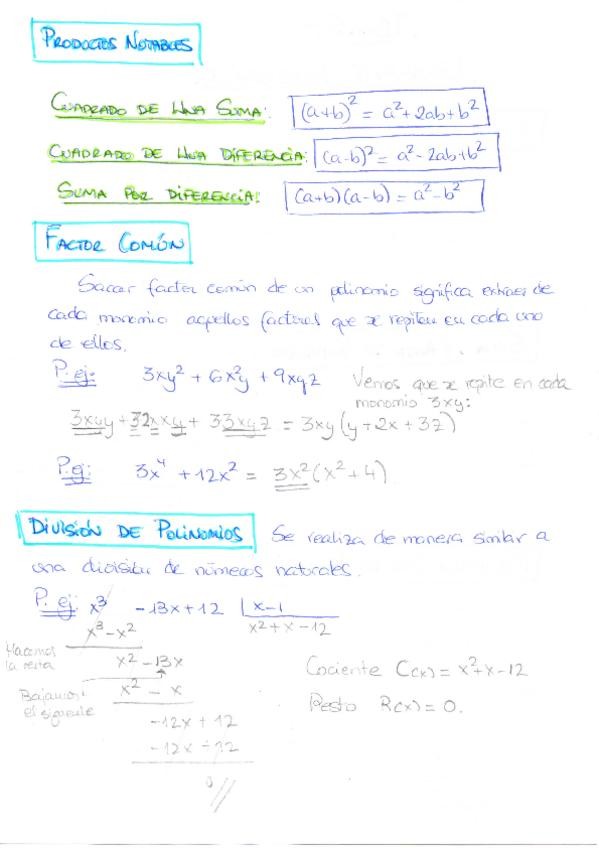 PRODUCTOS NOTABLES
CUADRADO DE UNA SUMA: (a+b)² = a²+2ab+b²
CUADRADO DE UNA DIFERENCIA: (a-b)² = a²-2ab+b²
SUMA POR DIFERENCIA: (a+b)(a-b) = a²-b²
FACTOR COMÚN
Sacar factor común de un polinomio significa extraer de
cada monomio aquellos factores que se repiten en cada uno
de ellos.
P. ej: 3xy² + 6x²y + 9xyz Vemos que se repite en cada
monomio 3xy:
3xyy + 32xxy + 33xyz = 3xy(y+2x+3z)
P. ej: 3x⁴ + 12x² = 3x²(x²+4)
DIVISIÓN DE POLINOMIOS Se realiza de manera similar a
una división de números naturales.
P. ej: x³ -13x+12 | x-1
x³-x² x²+x-12
Hacemos
la resta
x²-13x
Cociente C(x) = x²+x-12
Bajamos
el siguiente
x² - x
Resto R(x) = 0.
-12x + 12
-12x + 12
0//